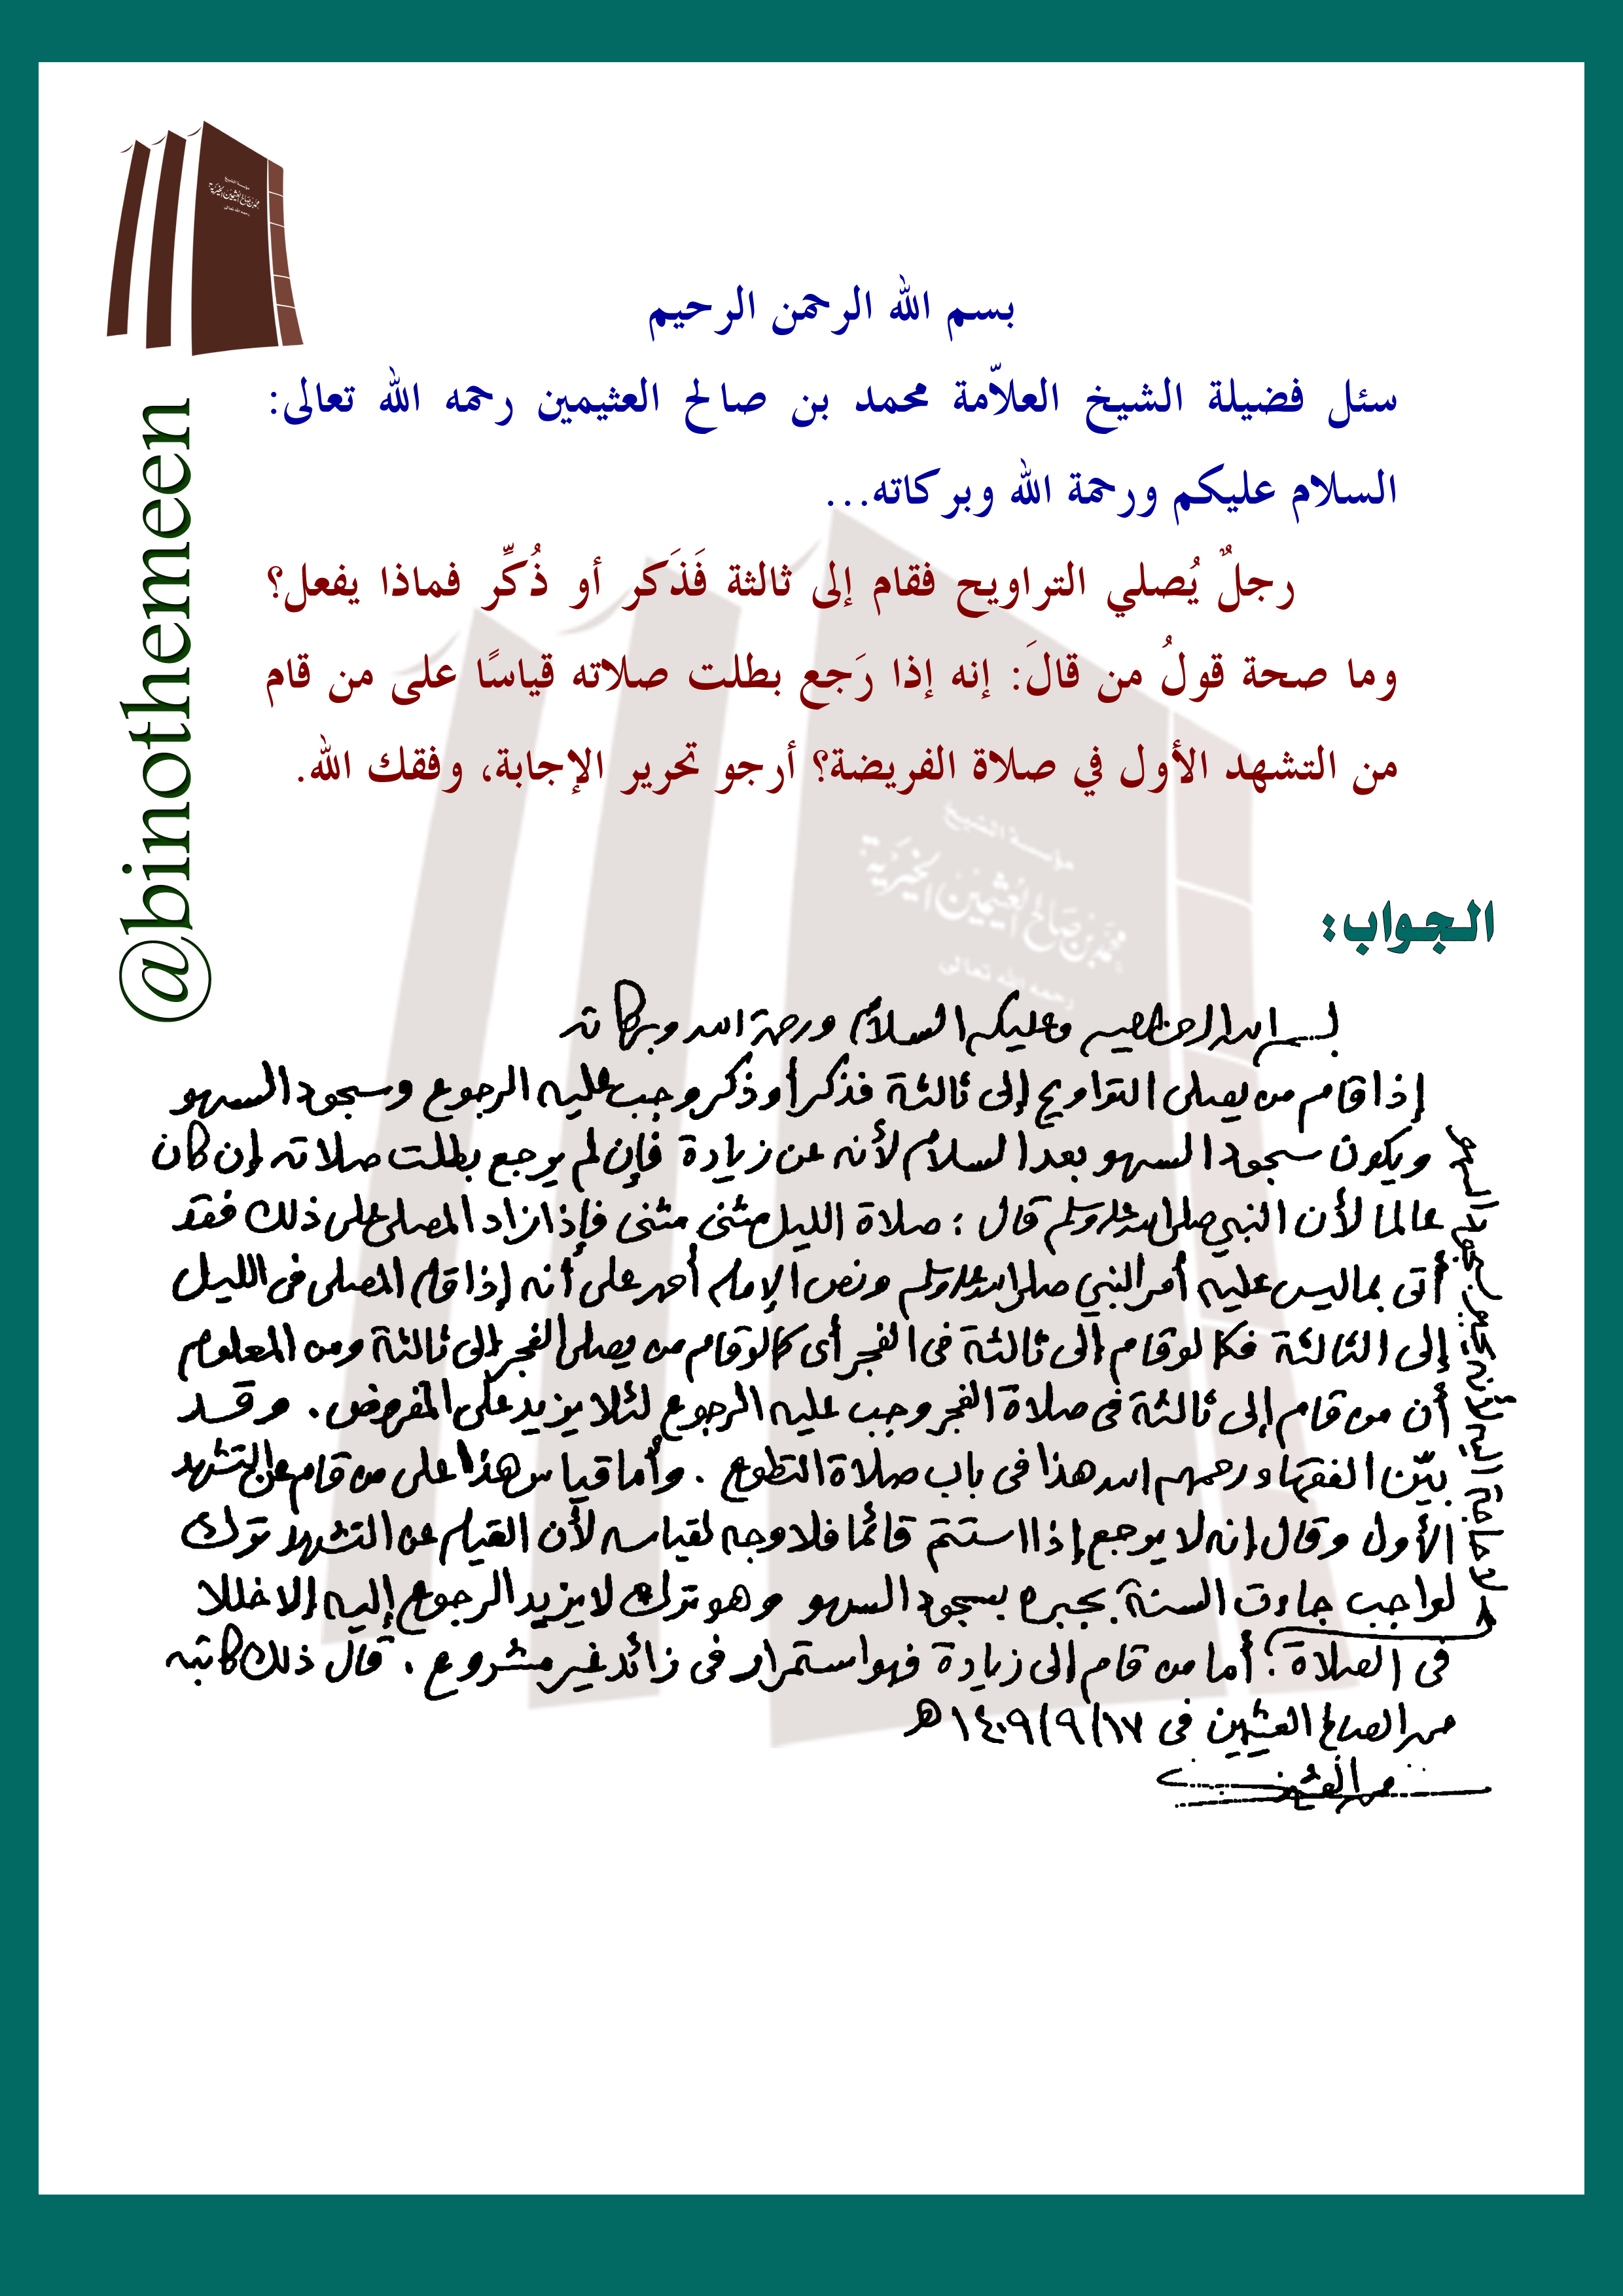 مؤسسة الشيخ
محمد بن صالح العثيمين الخيرية
رحمه الله تعالى
@binothemeen
بسم الله الرحمن الرحيم
سئل فضيلة الشيخ العلاّمة محمد بن صالح العثيمين رحمه الله تعالى:
السلام عليكم ورحمة الله وبركاته...
رجلٌ يُصلي التراويح فقام إلى ثالثة فَذَكر أو ذُكِّر فماذا يفعل؟
وما صحة قولُ من قالَ: إنه إذا رَجع بطلت صلاته قياسًا على من قام
من التشهد الأول في صلاة الفريضة؟ أرجو تحرير الإجابة، وفقك الله.
مؤسسة الشيخ
محمد بن صالح العثيمين الخيرية
رحمه الله تعالى
الجواب:
بسم الله الرحمن الرحيم وعليكم السلام ورحمة الله وبركاته
إذا قام من يصلى التراويح إلى ثالثة فذكر أو ذكر وجب عليه الرجوع وسجود السهو
ويكون سجود السهو بعد السلام لأنه عن زيادة فإن لم يرجع بطلت صلاته إن كان
عالما لأن النبي صلى الله عليه وسلم قال : صلاة الليل مثنى مثنى فإذا زاد المصلى على ذلك فقد
أتى بما ليس عليه أمر النبي صلى الله عليه وسلم ونص الإمام أحمد على أنه إذا قام المصلى فى الليل
إلى الثالثة فكما لو قام إلى ثالثة فى الفجر أى كما لو قام من يصلى الفجر إلى ثالثة ومن المعلوم
أن من قام إلى ثالثة فى صلاة الفجر وجب عليه الرجوع لئلا يزيد على المفروض . وقد
بيّن الفقهاء رحمهم الله هذا فى باب صلاة التطوع . وأما قياس هذا على من قام عن التشهد
الأول وقال إنه لا يرجع إذا استتم قائما فلا وجه لقياسه لأن القيام عن التشهد ترك
لواجب جاءت السنة بجبره بسجود السهو وهو ترك لا يزيد الرجوع إليه إلا خللا
فى الصلاة . أما من قام إلى زيادة فهو استمرار فى زائد غير مشروع . قال ذلك كاتبه
محمد الصالح العثيمين فى ١٤٠٩/٩/١٧ هـ
محمد العثيمين
لا حاجة إليه لأنه يجبر بسجود السهو